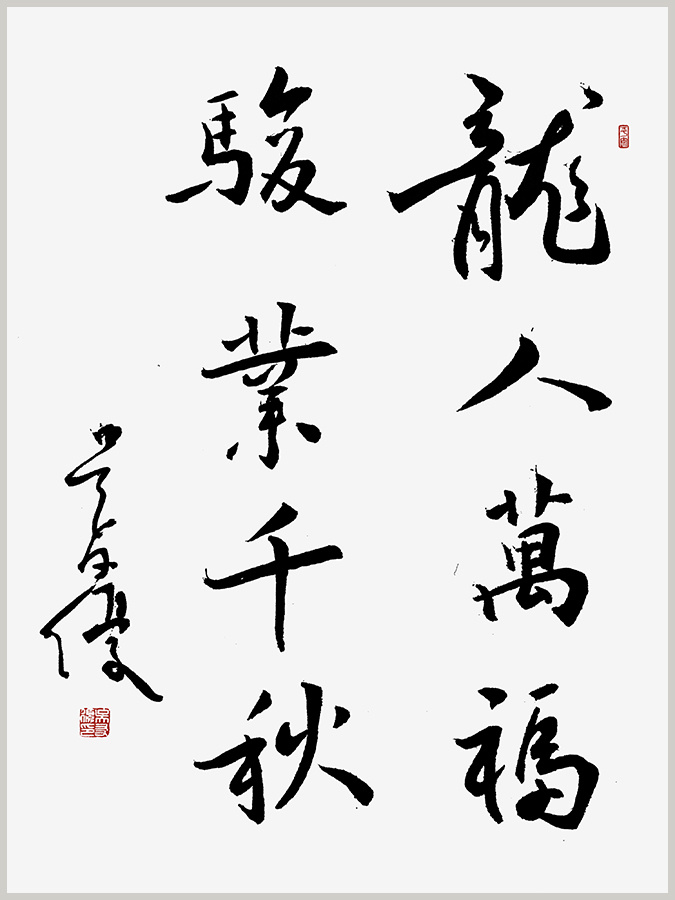 龍人萬福
駿業千秋